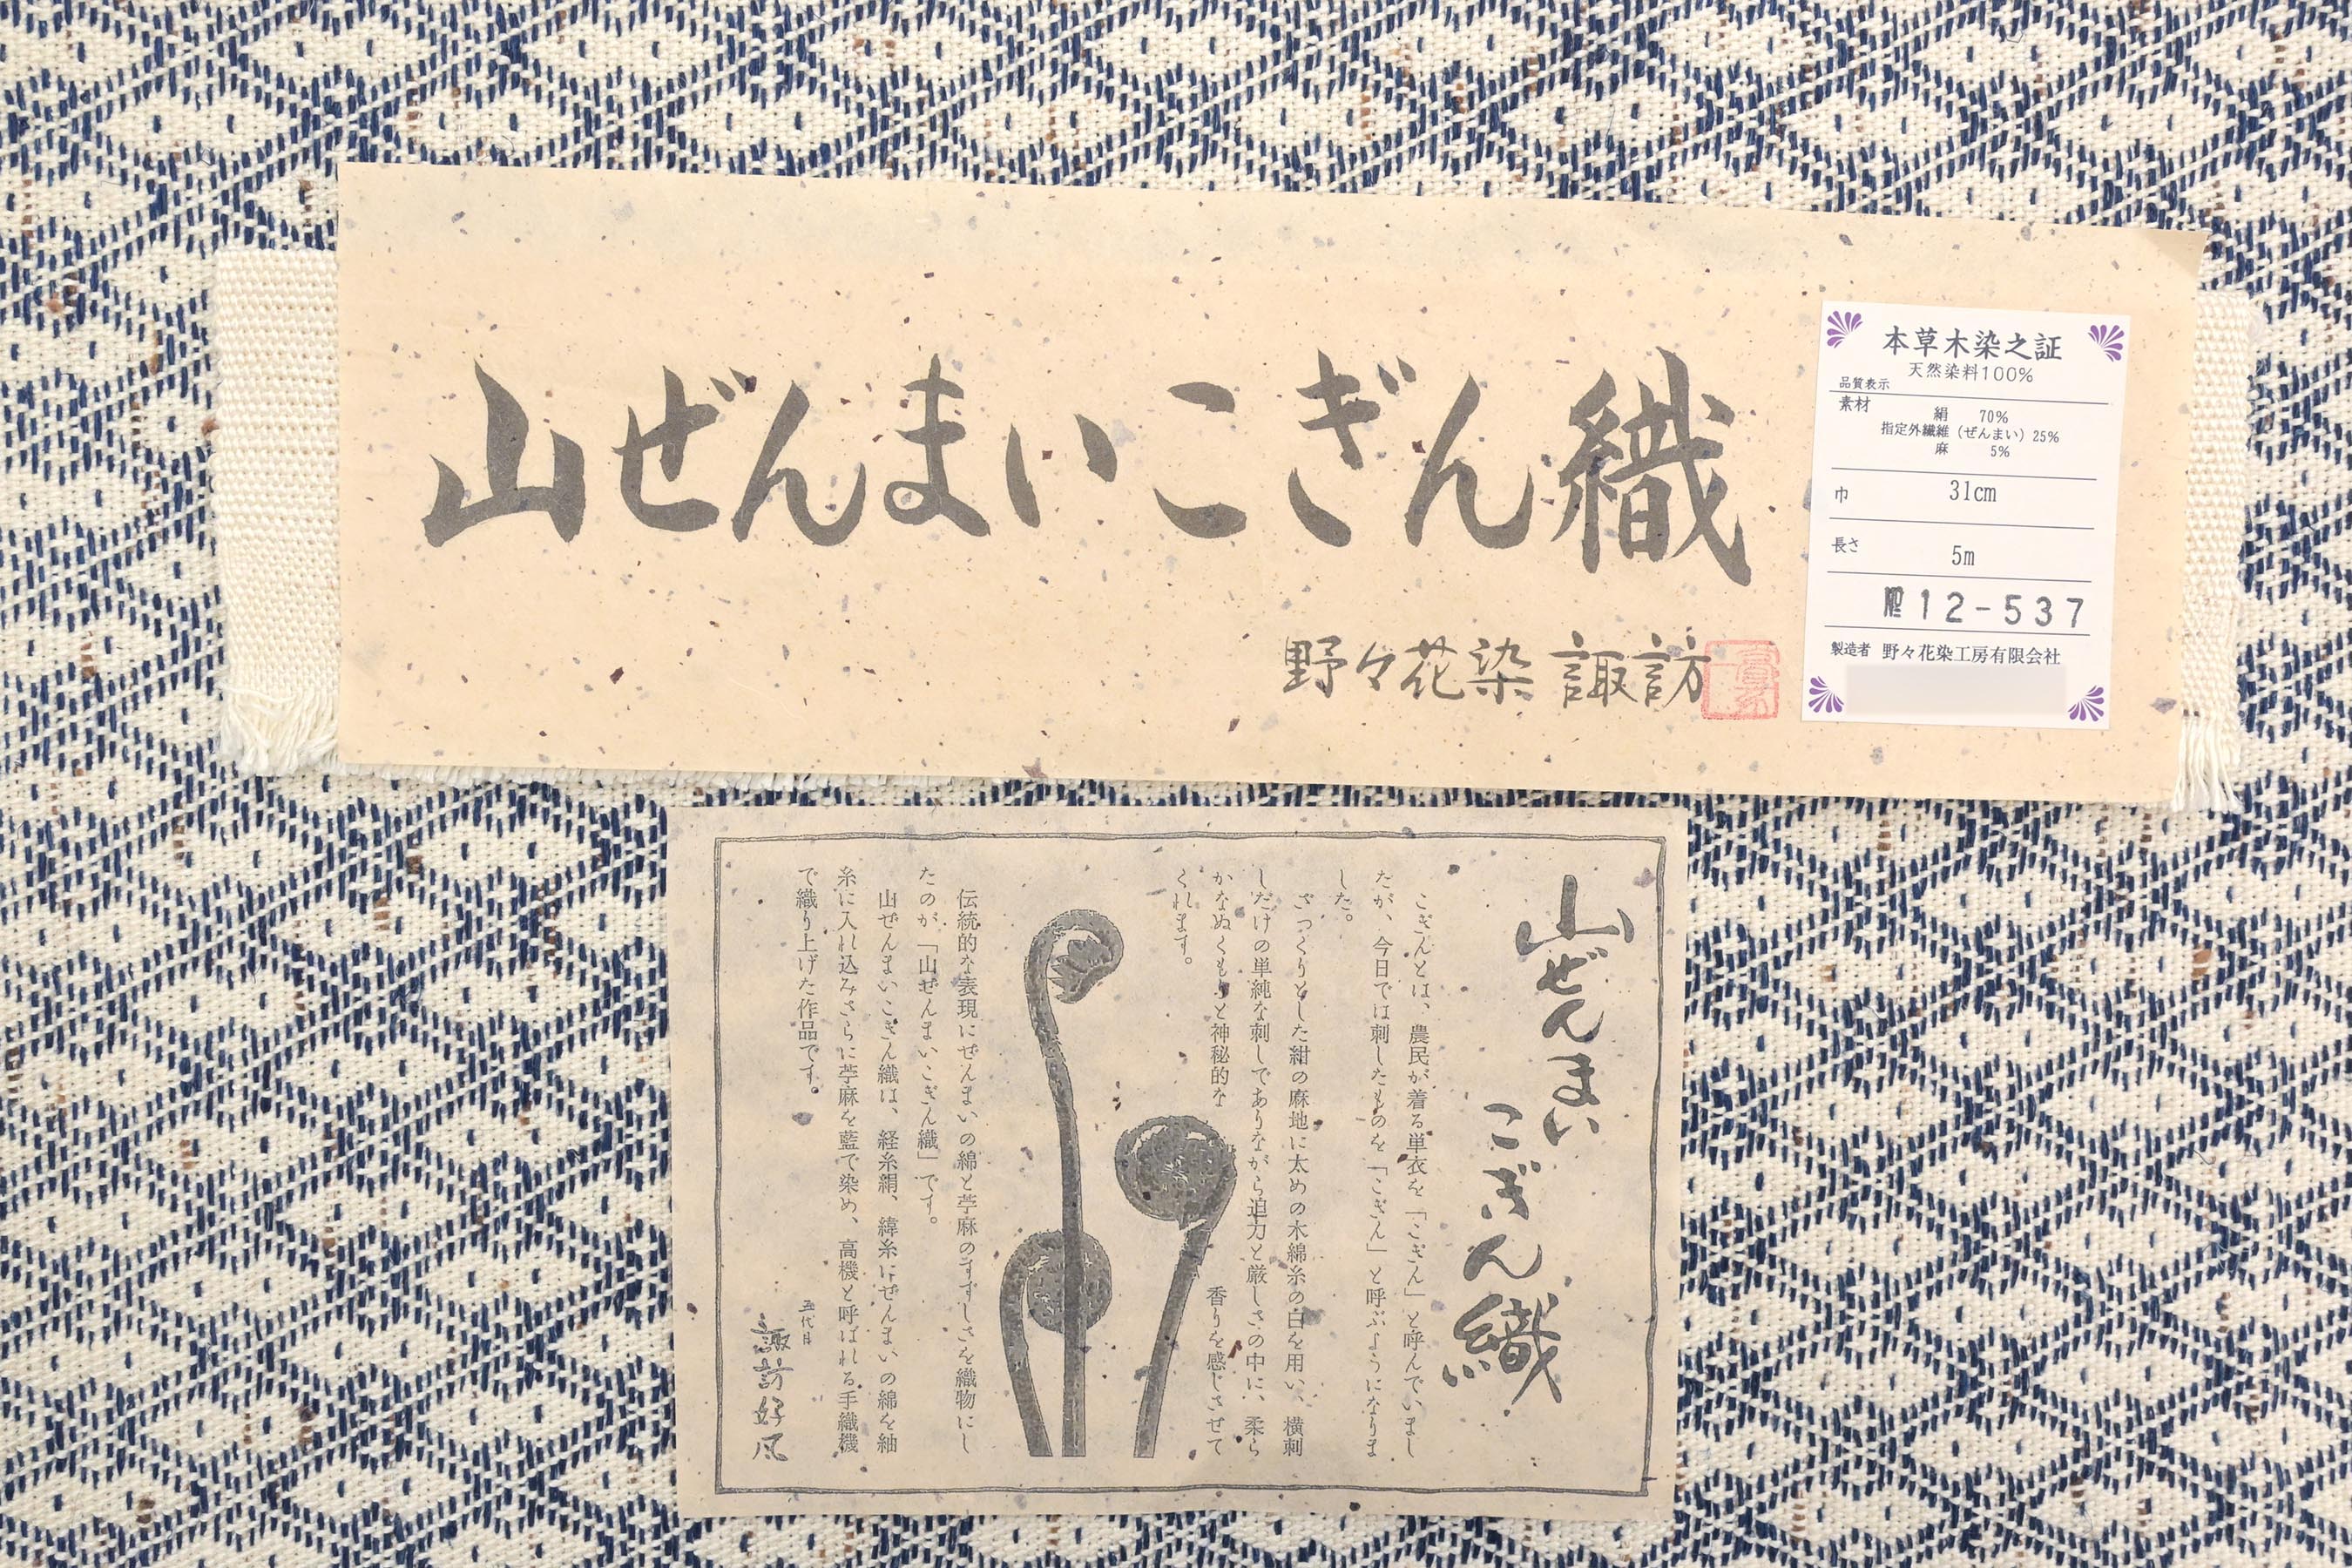 山ぜんまいこぎん織
野々花染 諏訪
本草木染之証
天然染料100%
品質表示
素材
絹 70%
指定外繊維（ぜんまい）25%
麻 5%
巾 31cm
長さ 5m
12-537
製造者 野々花染工房有限会社
山ぜんまい
こぎん織
こぎんとは、農民が着る単衣を「こぎん」と呼んでいまし
たが、今日では刺したものを「こぎん」と呼ぶようになりま
した。
ざっくりとした紺の麻地に太めの木綿糸の白を用い、横刺
しだけの単純な刺しでありながら迫力と厳しさの中に、柔ら
かなぬくもりと神秘的な 香りを感じさせて
くれます。
伝統的な表現にぜんまいの綿と苧麻のすずしさを織物にし
たのが「山ぜんまいこぎん織」です。
山ぜんまいこぎん織は、経糸絹、緯糸にぜんまいの綿を紬
糸に入れ込みさらに苧麻を藍で染め、高機と呼ばれる手織機
で織り上げた作品です。
五代目
諏訪好風